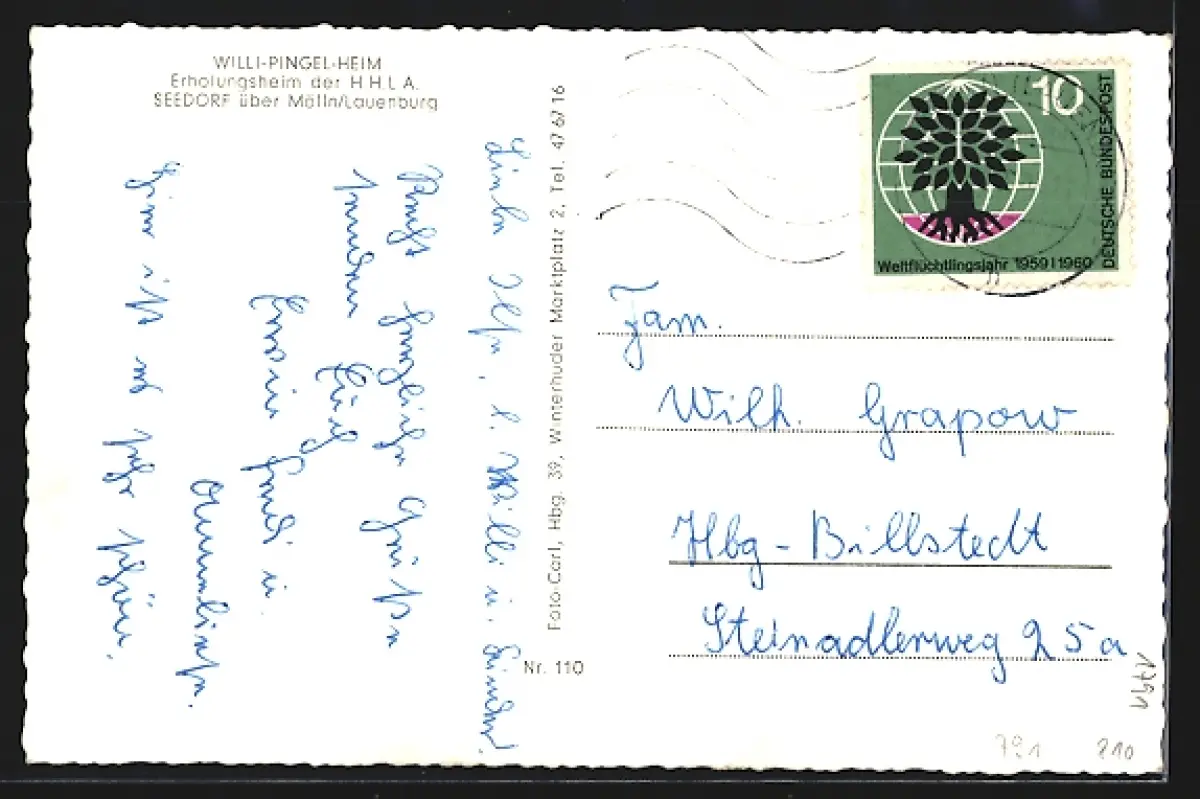 WILLI-PINGEL-HEIM
Erholungsheim der H H L A.
SEEDORF über Mölln/Lauenburg
Liebe Ilse, l. Willi u. Kinder!
Recht herzliche Grüße
senden Euch
Erwin
u.
Annaliese.
Hier ist es sehr schön.
Foto-Carl, Hbg. 39, Winterhuder Marktplatz 2, Tel. 47 67 16
Nr. 110
10
DEUTSCHE BUNDESPOST
Weltflüchtlingsjahr 1959 | 1960
Fam.
Wilh. Grapow
Hbg - Billstedt
Steinadlerweg 25a
791
210